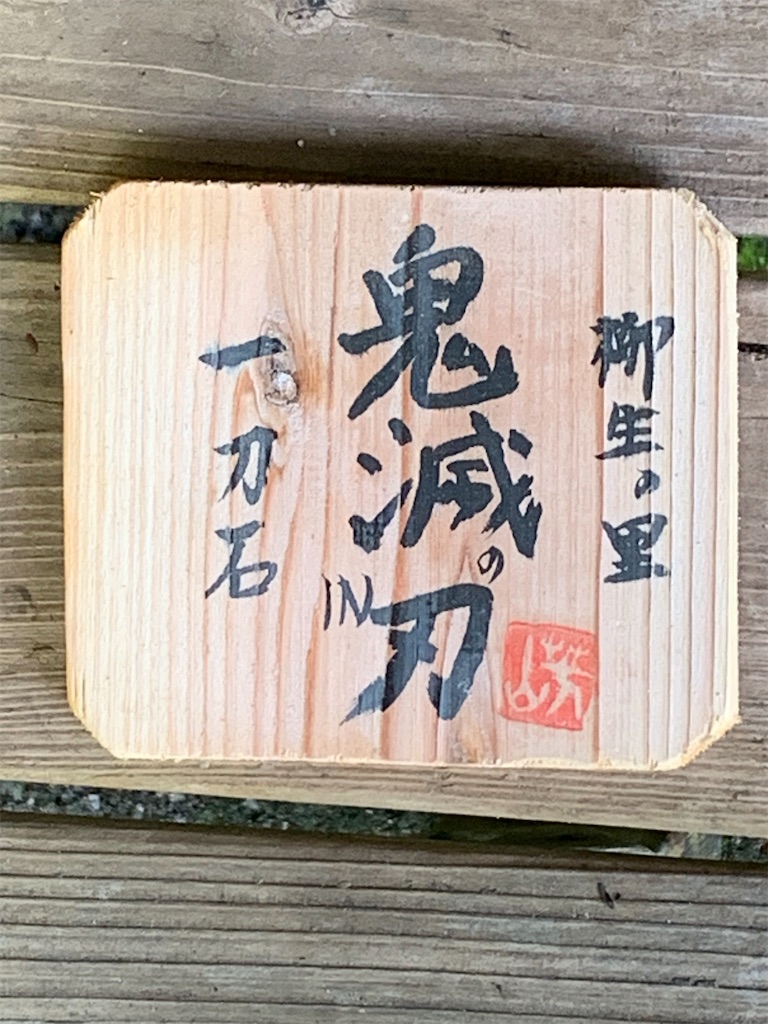 柳生の里
鬼滅の刃
IN
一刀石